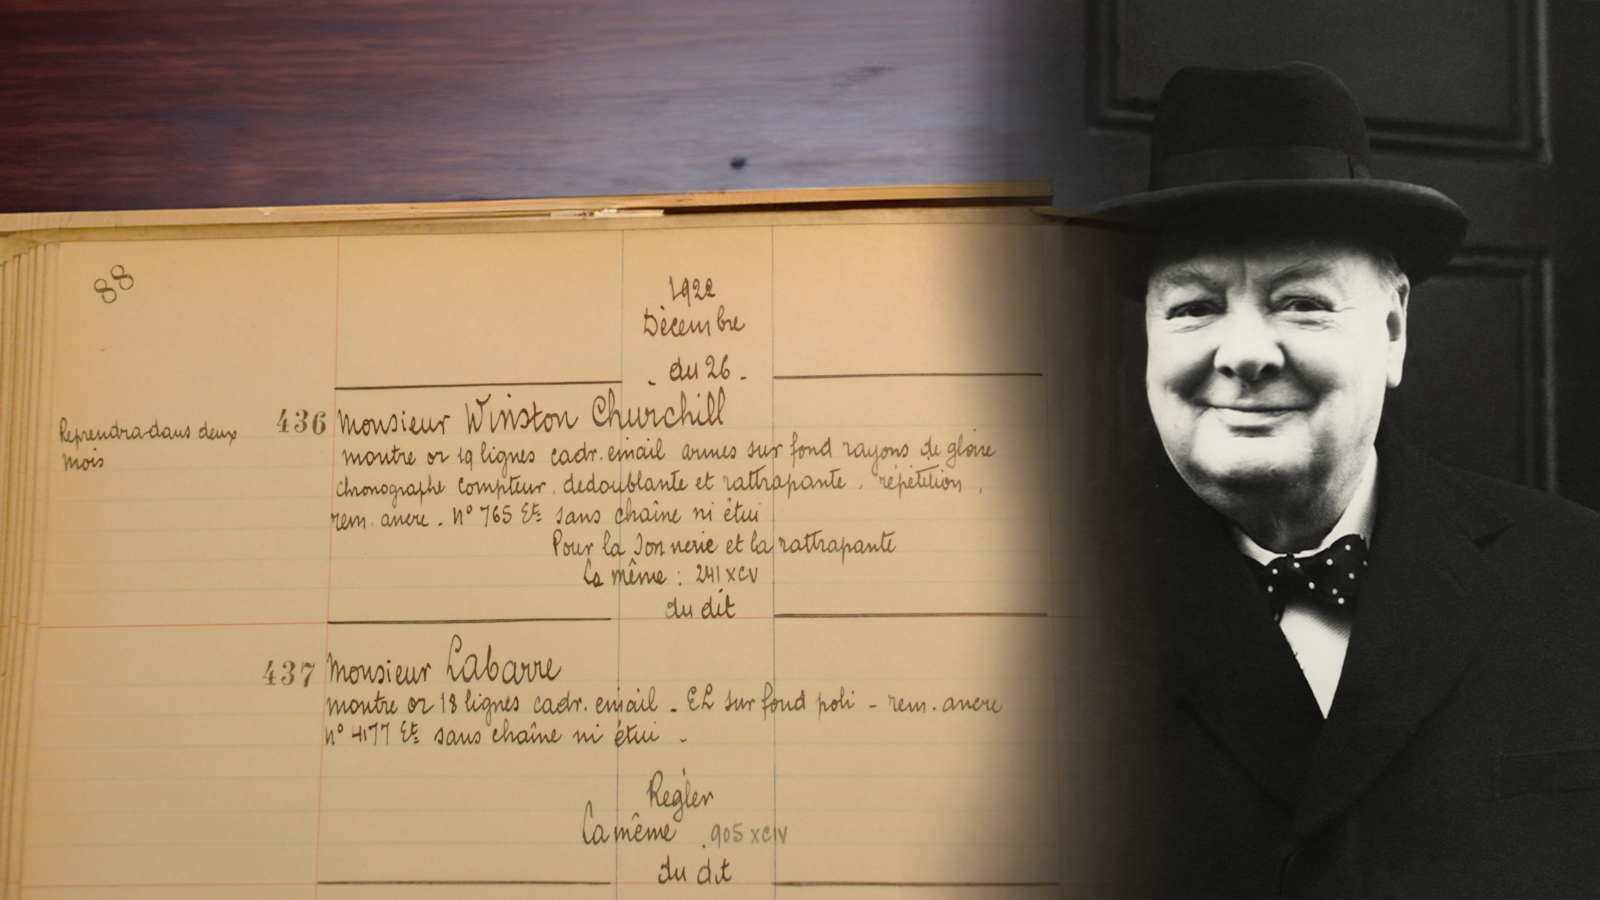 88
1922
Décembre
du 26
Reprendra dans deux
mois
436 Monsieur Winston Churchill
montre or 19 lignes cadr. email armes sur fond rayons de gloire
chronographe compteur. dedoublante et rattrapante. répétition,
rem. ancre. N° 765 Et sans chaîne ni étui
Pour la Sonnerie et la rattrapante
La même: 241 XCV
du dit
437 Monsieur Labarre
montre or 18 lignes cadr. email - EL sur fond poli - rem. ancre
N° 4177 Et sans chaîne ni étui -
Regler
La même 905 XCIV
du dit